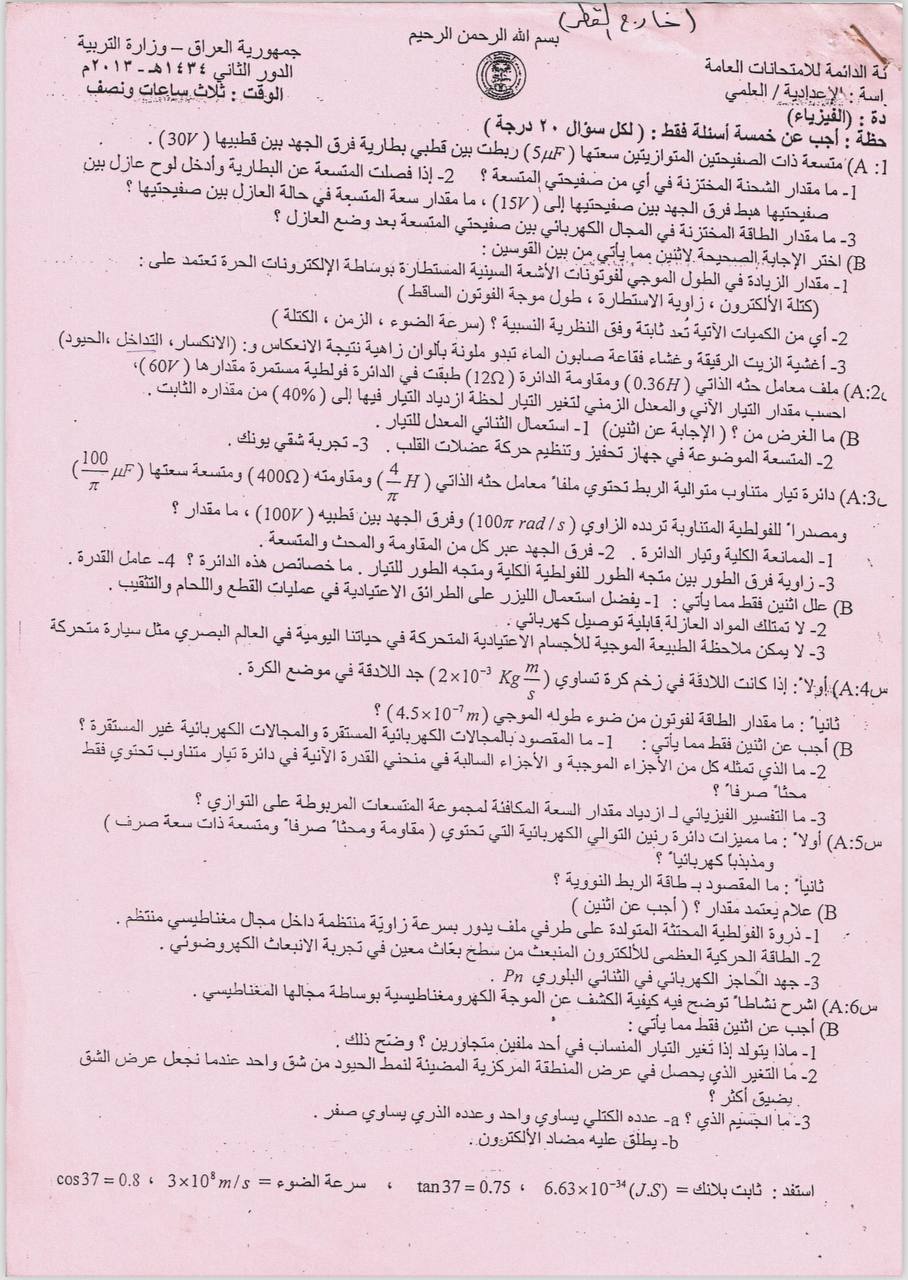 (خارج القطر)
بسم الله الرحمن الرحيم
جمهورية العراق – وزارة التربية
الدور الثاني ١٤٣٤هـ - ٢٠١٣م
الوقت : ثلاث ساعات ونصف
نة الدائمة للامتحانات العامة
اسة : الإعدادية / العلمي
دة : (الفيزياء)
حظة : أجب عن خمسة أسئلة فقط : ( لكل سؤال ٢٠ درجة )
1: A) متسعة ذات الصفيحتين المتوازيتين سعتها ( 5μF ) ربطت بين قطبي بطارية فرق الجهد بين قطبيها ( 30V ) .
1- ما مقدار الشحنة المختزنة في أي من صفيحتي المتسعة ؟ 2- إذا فصلت المتسعة عن البطارية وأدخل لوح عازل بين
صفيحتيها هبط فرق الجهد بين صفيحتيها إلى ( 15V ) ، ما مقدار سعة المتسعة في حالة العازل بين صفيحتيها ؟
3- ما مقدار الطاقة المختزنة في المجال الكهربائي بين صفيحتي المتسعة بعد وضع العازل ؟
B) اختر الإجابة الصحيحة لاثنين مما يأتي من بين القوسين :
1- مقدار الزيادة في الطول الموجي لفوتونات الأشعة السينية المستطارة بوساطة الإلكترونات الحرة تعتمد على :
(كتلة الألكترون ، زاوية الاستطارة ، طول موجة الفوتون الساقط )
2- أي من الكميات الآتية تُعد ثابتة وفق النظرية النسبية ؟ (سرعة الضوء ، الزمن ، الكتلة )
3- أغشية الزيت الرقيقة وغشاء فقاعة صابون الماء تبدو ملونة بألوان زاهية نتيجة الانعكاس و: (الانكسار، التداخل ،الحيود)
2:A) ملف معامل حثه الذاتي ( 0.36H ) ومقاومة الدائرة ( 12Ω ) طبقت في الدائرة فولطية مستمرة مقدارها ( 60V )،
احسب مقدار التيار الآني والمعدل الزمني لتغير التيار لحظة ازدياد التيار فيها إلى ( 40% ) من مقداره الثابت .
B) ما الغرض من ؟ ( الإجابة عن اثنين) 1- استعمال الثنائي المعدل للتيار .
2- المتسعة الموضوعة في جهاز تحفيز وتنظيم حركة عضلات القلب . 3- تجربة شقي يونك .
3:A) دائرة تيار متناوب متوالية الربط تحتوي ملفاً معامل حثه الذاتي ( 4/π H ) ومقاومته ( 400Ω ) ومتسعة سعتها ( 100/π μF )
ومصدراً للفولطية المتناوبة تردده الزاوي ( 100π rad / s ) وفرق الجهد بين قطبيه ( 100V ) ، ما مقدار ؟
1- الممانعة الكلية وتيار الدائرة . 2- فرق الجهد عبر كل من المقاومة والمحث والمتسعة .
3- زاوية فرق الطور بين متجه الطور للفولطية الكلية ومتجه الطور للتيار . ما خصائص هذه الدائرة ؟ 4- عامل القدرة .
B) علل اثنين فقط مما يأتي : 1- يفضل استعمال الليزر على الطرائق الاعتيادية في عمليات القطع واللحام والتثقيب .
2- لا تمتلك المواد العازلة قابلية توصيل كهربائي .
3- لا يمكن ملاحظة الطبيعة الموجية للأجسام الاعتيادية المتحركة في حياتنا اليومية في العالم البصري مثل سيارة متحركة
س4:A) أولاً : إذا كانت اللادقة في زخم كرة تساوي ( 2×10⁻³ Kg m/s ) جد اللادقة في موضع الكرة .
ثانياً : ما مقدار الطاقة لفوتون من ضوء طوله الموجي ( 4.5×10⁻⁷ m ) ؟
B) أجب عن اثنين فقط مما يأتي : 1- ما المقصود بالمجالات الكهربائية المستقرة والمجالات الكهربائية غير المستقرة ؟
2- ما الذي تمثله كل من الأجزاء الموجبة و الأجزاء السالبة في منحني القدرة الآنية في دائرة تيار متناوب تحتوي فقط
محثاً صرفاً ؟
3- ما التفسير الفيزيائي لـ ازدياد مقدار السعة المكافئة لمجموعة المتسعات المربوطة على التوازي ؟
س5:A) أولاً : ما مميزات دائرة رنين التوالي الكهربائية التي تحتوي ( مقاومة ومحثاً صرفاً ومتسعة ذات سعة صرف )
ومذبذبا كهربائياً ؟
ثانياً : ما المقصود بـ طاقة الربط النووية ؟
B) علام يعتمد مقدار ؟ ( أجب عن اثنين )
1- ذروة الفولطية المحتثة المتولدة على طرفي ملف يدور بسرعة زاويّة منتظمة داخل مجال مغناطيسي منتظم .
2- الطاقة الحركية العظمى للألكترون المنبعث من سطح بعّاث معين في تجربة الانبعاث الكهروضوئي .
3- جهد الحاجز الكهربائي في الثنائي البلوري Pn .
س6:A) اشرح نشاطاً توضح فيه كيفية الكشف عن الموجة الكهرومغناطيسية بوساطة مجالها المغناطيسي .
B) أجب عن اثنين فقط مما يأتي :
1- ماذا يتولد إذا تغير التيار المنساب في أحد ملفين متجاورين ؟ وضح ذلك .
2- ما التغير الذي يحصل في عرض المنطقة المركزية المضيئة لنمط الحيود من شق واحد عندما نجعل عرض الشق
يضيق أكثر ؟
3- ما الجسيم الذي ؟ a- عدده الكتلي يساوي واحد وعدده الذري يساوي صفر .
b- يطلق عليه مضاد الألكترون .
استفد : ثابت بلانك = 6.63×10⁻³⁴ (J.S) ، tan37 = 0.75 ، سرعة الضوء = 3×10⁸ m/s ، cos37 = 0.8